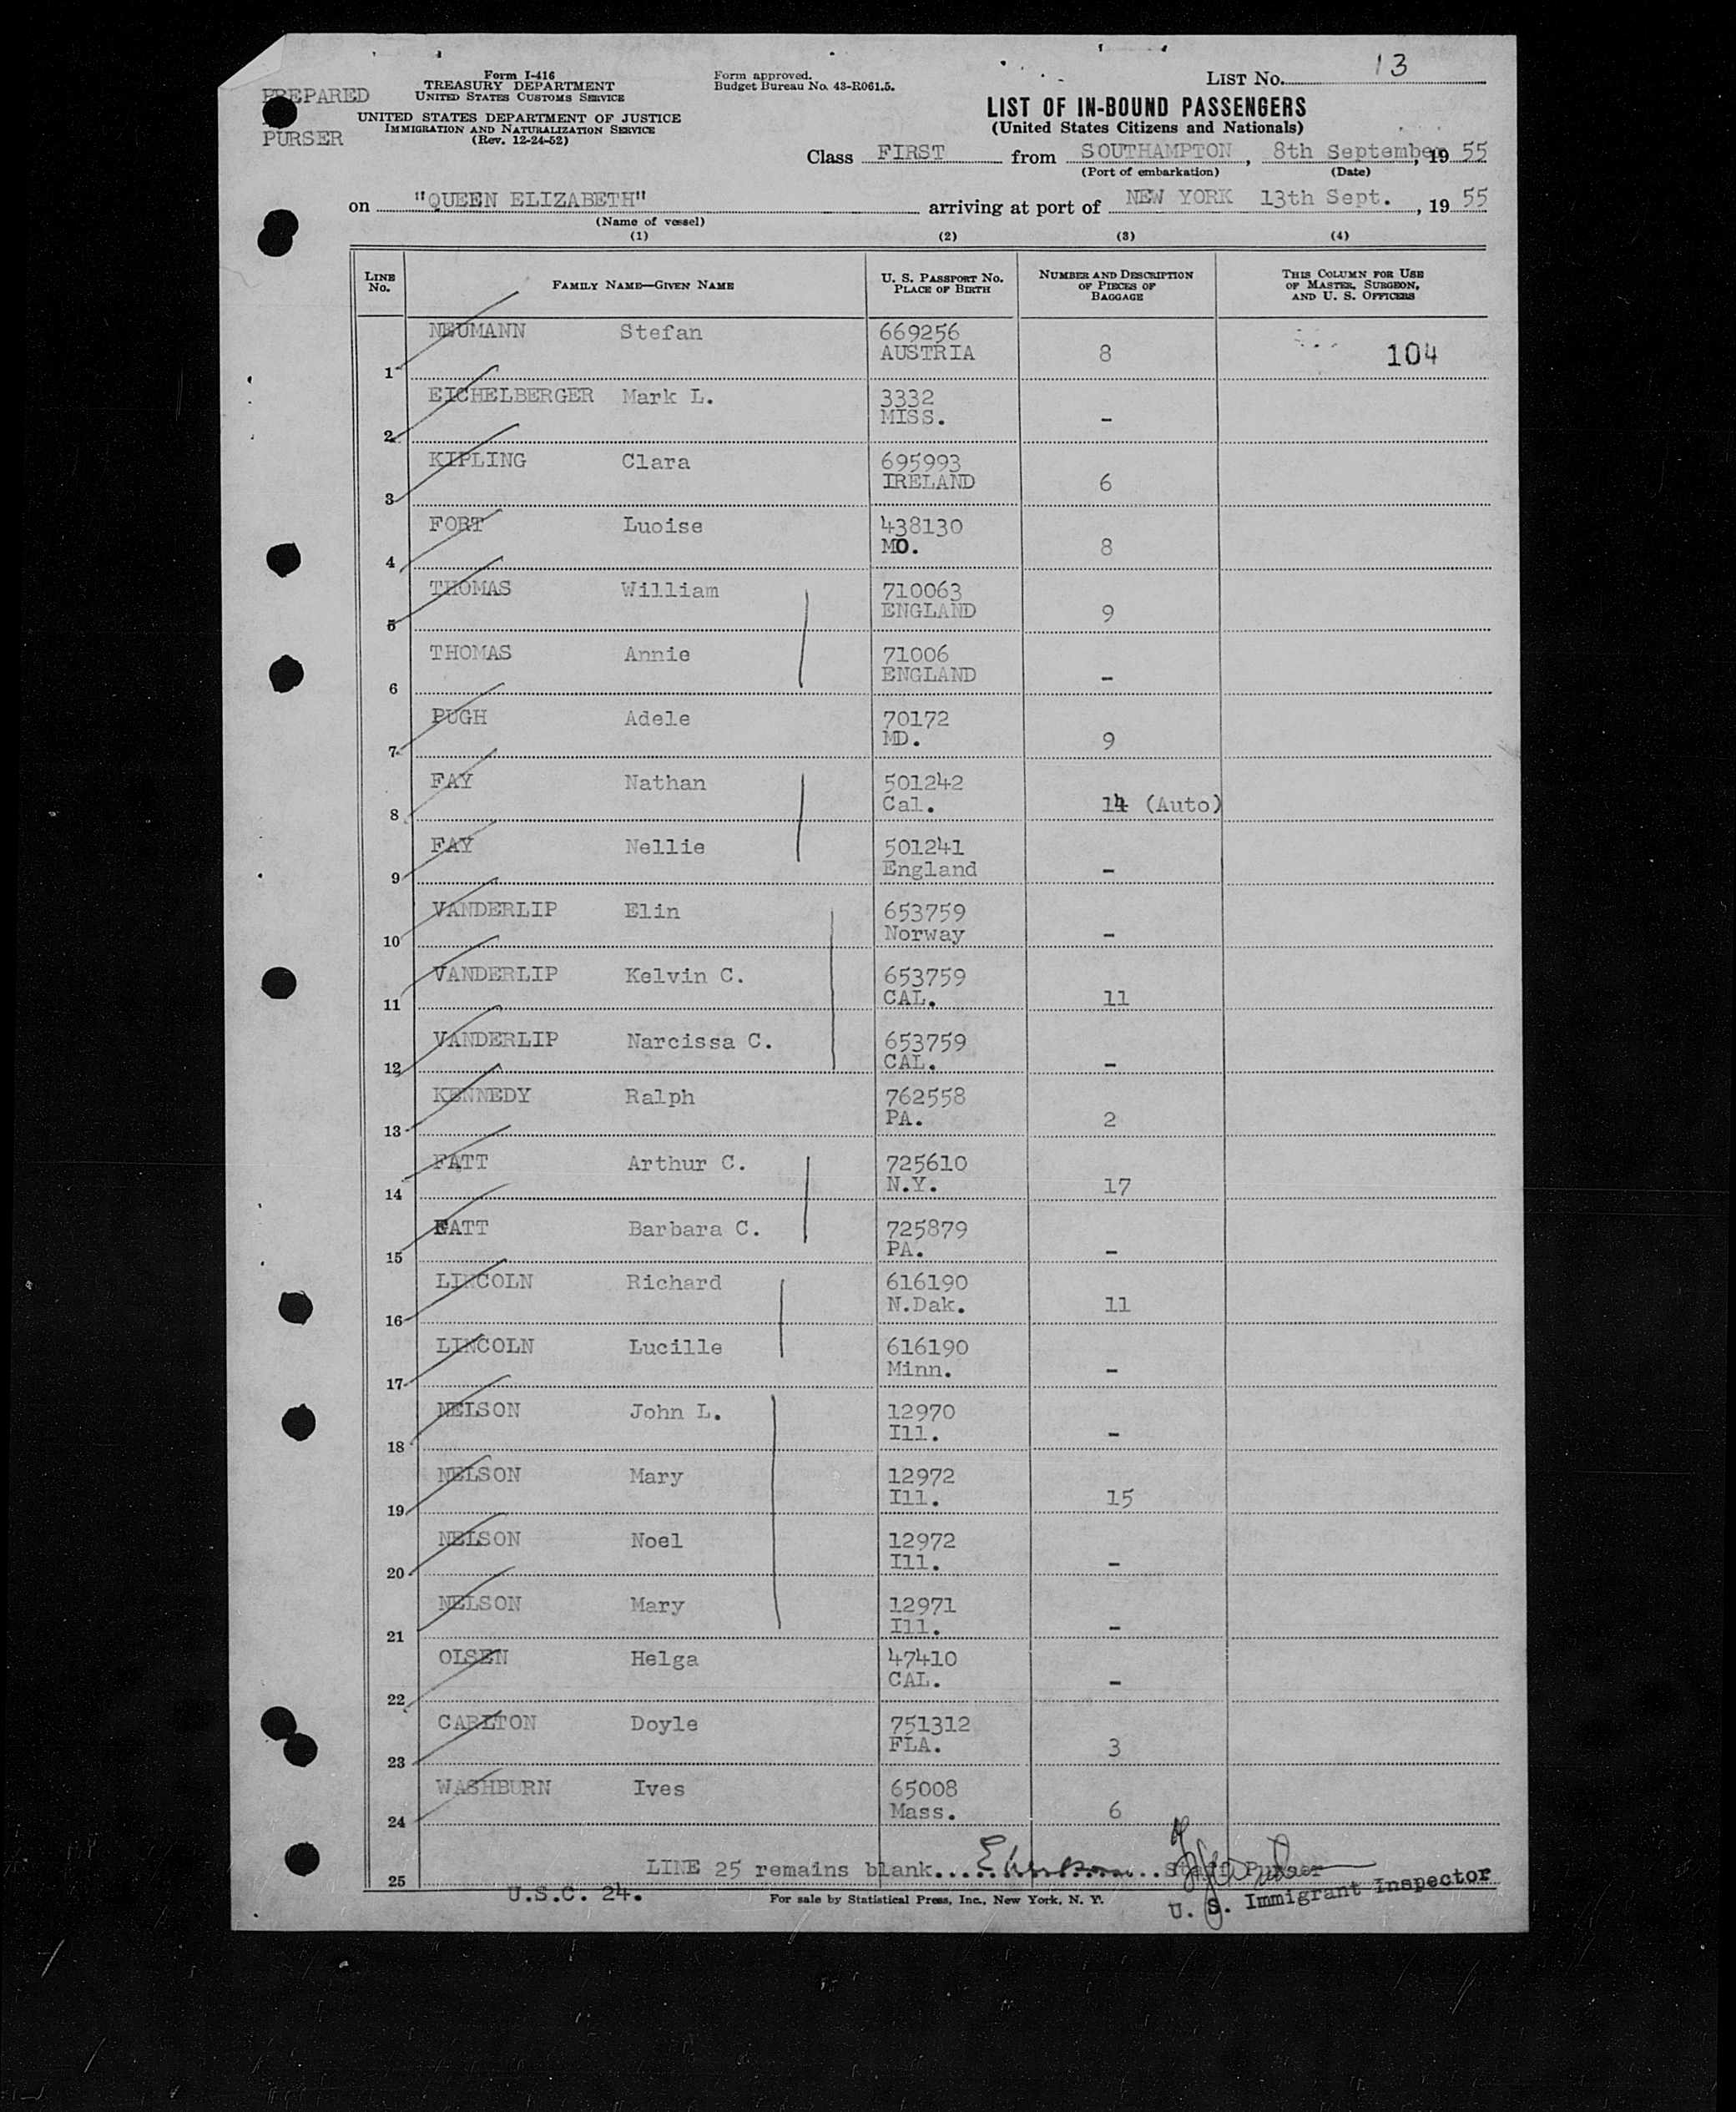 PREPARED
PURSER
Form I-416
TREASURY DEPARTMENT
UNITED STATES CUSTOMS SERVICE
UNITED STATES DEPARTMENT OF JUSTICE
IMMIGRATION AND NATURALIZATION SERVICE
(Rev. 12-24-52)
Form approved.
Budget Bureau No. 43-R061.5.
LIST NO. 13
LIST OF IN-BOUND PASSENGERS
(United States Citizens and Nationals)
Class FIRST from SOUTHAMPTON, 8th September, 19 55
(Port of embarkation) (Date)
on "QUEEN ELIZABETH" arriving at port of NEW YORK 13th Sept., 19 55
(Name of vessel)
(1) (2) (3) (4)
LINE No. FAMILY NAME—GIVEN NAME U. S. PASSPORT NO. PLACE OF BIRTH NUMBER AND DESCRIPTION OF PIECES OF BAGGAGE THIS COLUMN FOR USE OF MASTER, SURGEON, AND U. S. OFFICERS
1 NEUMANN Stefan 669256 AUSTRIA 8 104
2 EICHELBERGER Mark L. 3332 MISS. -
3 KIPLING Clara 695993 IRELAND 6
4 FORT Luoise 438130 MO. 8
5 THOMAS William 710063 ENGLAND 9
6 THOMAS Annie 71006 ENGLAND -
7 PUGH Adele 70172 MD. 9
8 FAY Nathan 501242 Cal. 14 (Auto)
9 FAY Nellie 501241 England -
10 VANDERLIP Elin 653759 Norway -
11 VANDERLIP Kelvin C. 653759 CAL. 11
12 VANDERLIP Narcissa C. 653759 CAL. -
13 KENNEDY Ralph 762558 PA. 2
14 FATT Arthur C. 725610 N.Y. 17
15 FATT Barbara C. 725879 PA. -
16 LINCOLN Richard 616190 N.Dak. 11
17 LINCOLN Lucille 616190 Minn. -
18 NELSON John L. 12970 Ill. -
19 NELSON Mary 12972 Ill. 15
20 NELSON Noel 12972 Ill. -
21 NELSON Mary 12971 Ill. -
22 OLSEN Helga 47410 CAL. -
23 CARLTON Doyle 751312 FLA. 3
24 WASHBURN Ives 65008 Mass. 6
25 LINE 25 remains blank.... Staff Purser
U.S.C. 24.
For sale by Statistical Press, Inc., New York, N. Y.
U. S. Immigrant Inspector